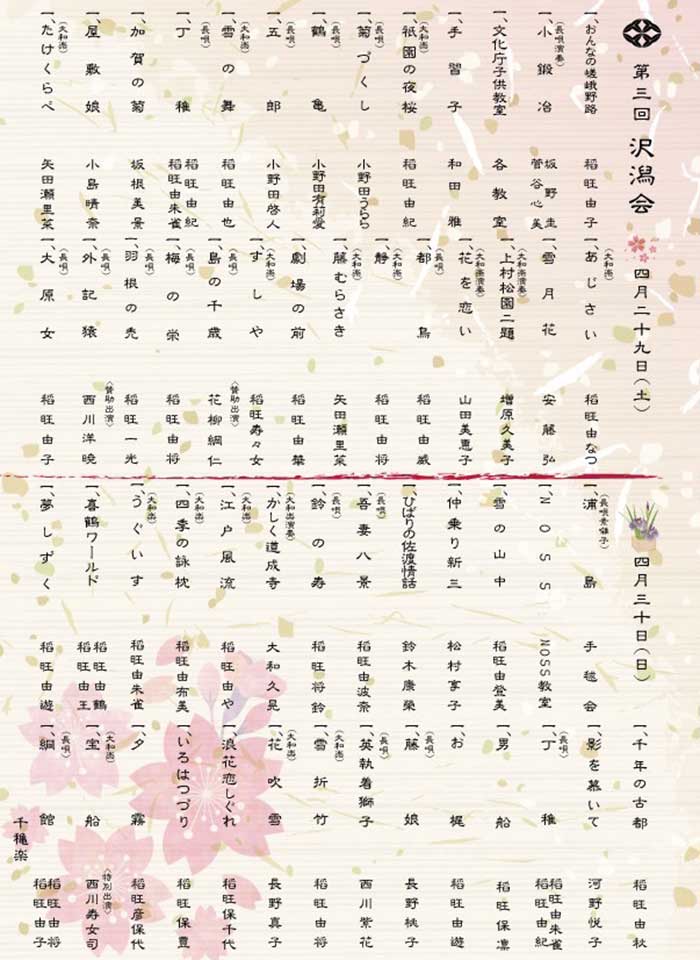 第三回 沢潟会
四月二十九日(土)
一、おんなの嵯峨野路 稻旺由子
(長唄演奏)
一、小鍛冶 坂野圭 菅谷心美
一、文化庁子供教室 各教室
一、手習子 和田雅
(大和楽)
一、祇園の夜桜 稻旺由紀
(長唄)
一、菊づくし 小野田うらら
(長唄)
一、鶴亀 小野田有莉愛
(長唄)
一、五郎 小野田啓人
(大和楽)
一、雪の舞 稻旺由也
(長唄)
一、丁稚 稻旺由紀 稻旺由朱雀
一、加賀の菊 坂根美景
一、屋敷娘 小島晴奈
(大和楽)
一、たけくらべ 矢田瀬里菜
(大和楽)
一、あじさい 稻旺由なつ
一、雪月花 安藤弘
(大和楽演奏)
一、上村松園二題 増原久美子
(大和楽演奏)
一、花を恋い 山田美恵子
(長唄)
一、都鳥 稻旺由威
(大和楽)
一、静 稻旺由将
(大和楽)
一、藤むらさき 矢田瀬里菜
一、劇場の前 稻旺由華
(大和楽)
一、すしや 稻旺寿々女
(長唄)
一、島の千歳 (賛助出演) 花柳綱仁
(長唄)
一、梅の栄 稻旺由将
(長唄)
一、羽根の禿 稻旺一光
(長唄)
一、外記猿 (賛助出演) 西川洋暁
(長唄)
一、大原女 稻旺由子
四月三十日(日)
(長唄素囃子)
一、浦島 手毬会
一、NOSS NOSS教室
一、雪の山中 稻旺由登美
一、仲乗り新三 松村享子
一、ひばりの佐渡情話 鈴木康榮
(長唄)
一、吾妻八景 稻旺由波奈
(長唄)
一、鈴の寿 稻旺将鈴
(大和楽演奏)
一、かしく道成寺 大和久晃
(大和楽)
一、江戸風流 稻旺由や
(大和楽)
一、四季の詠枕 稻旺由布美
(大和楽)
一、うぐいす 稻旺由朱雀
一、喜鶴ワールド 稻旺由鶴 稻旺由王
一、夢しずく 稻旺由遊
一、千年の古都 稻旺由秋
一、影を慕いて 河野悦子
(長唄)
一、丁稚 稻旺由朱雀 稻旺由紀
一、男船 稻旺保凛
一、お梶 稻旺由遊
(長唄)
一、藤娘 長野桃子
(長唄)
一、英執着獅子 西川紫花
(大和楽)
一、雪折竹 稻旺由将
(大和楽)
一、花吹雪 長野真子
一、浪花恋しぐれ 稻旺保千代
一、いろはつづり 稻旺保豊
一、夕霧 稻旺彦保代
(大和楽)
一、宝船 (特別出演) 西川寿女司
(長唄)
一、綱館 稻旺由将 稻旺由子
千穐楽